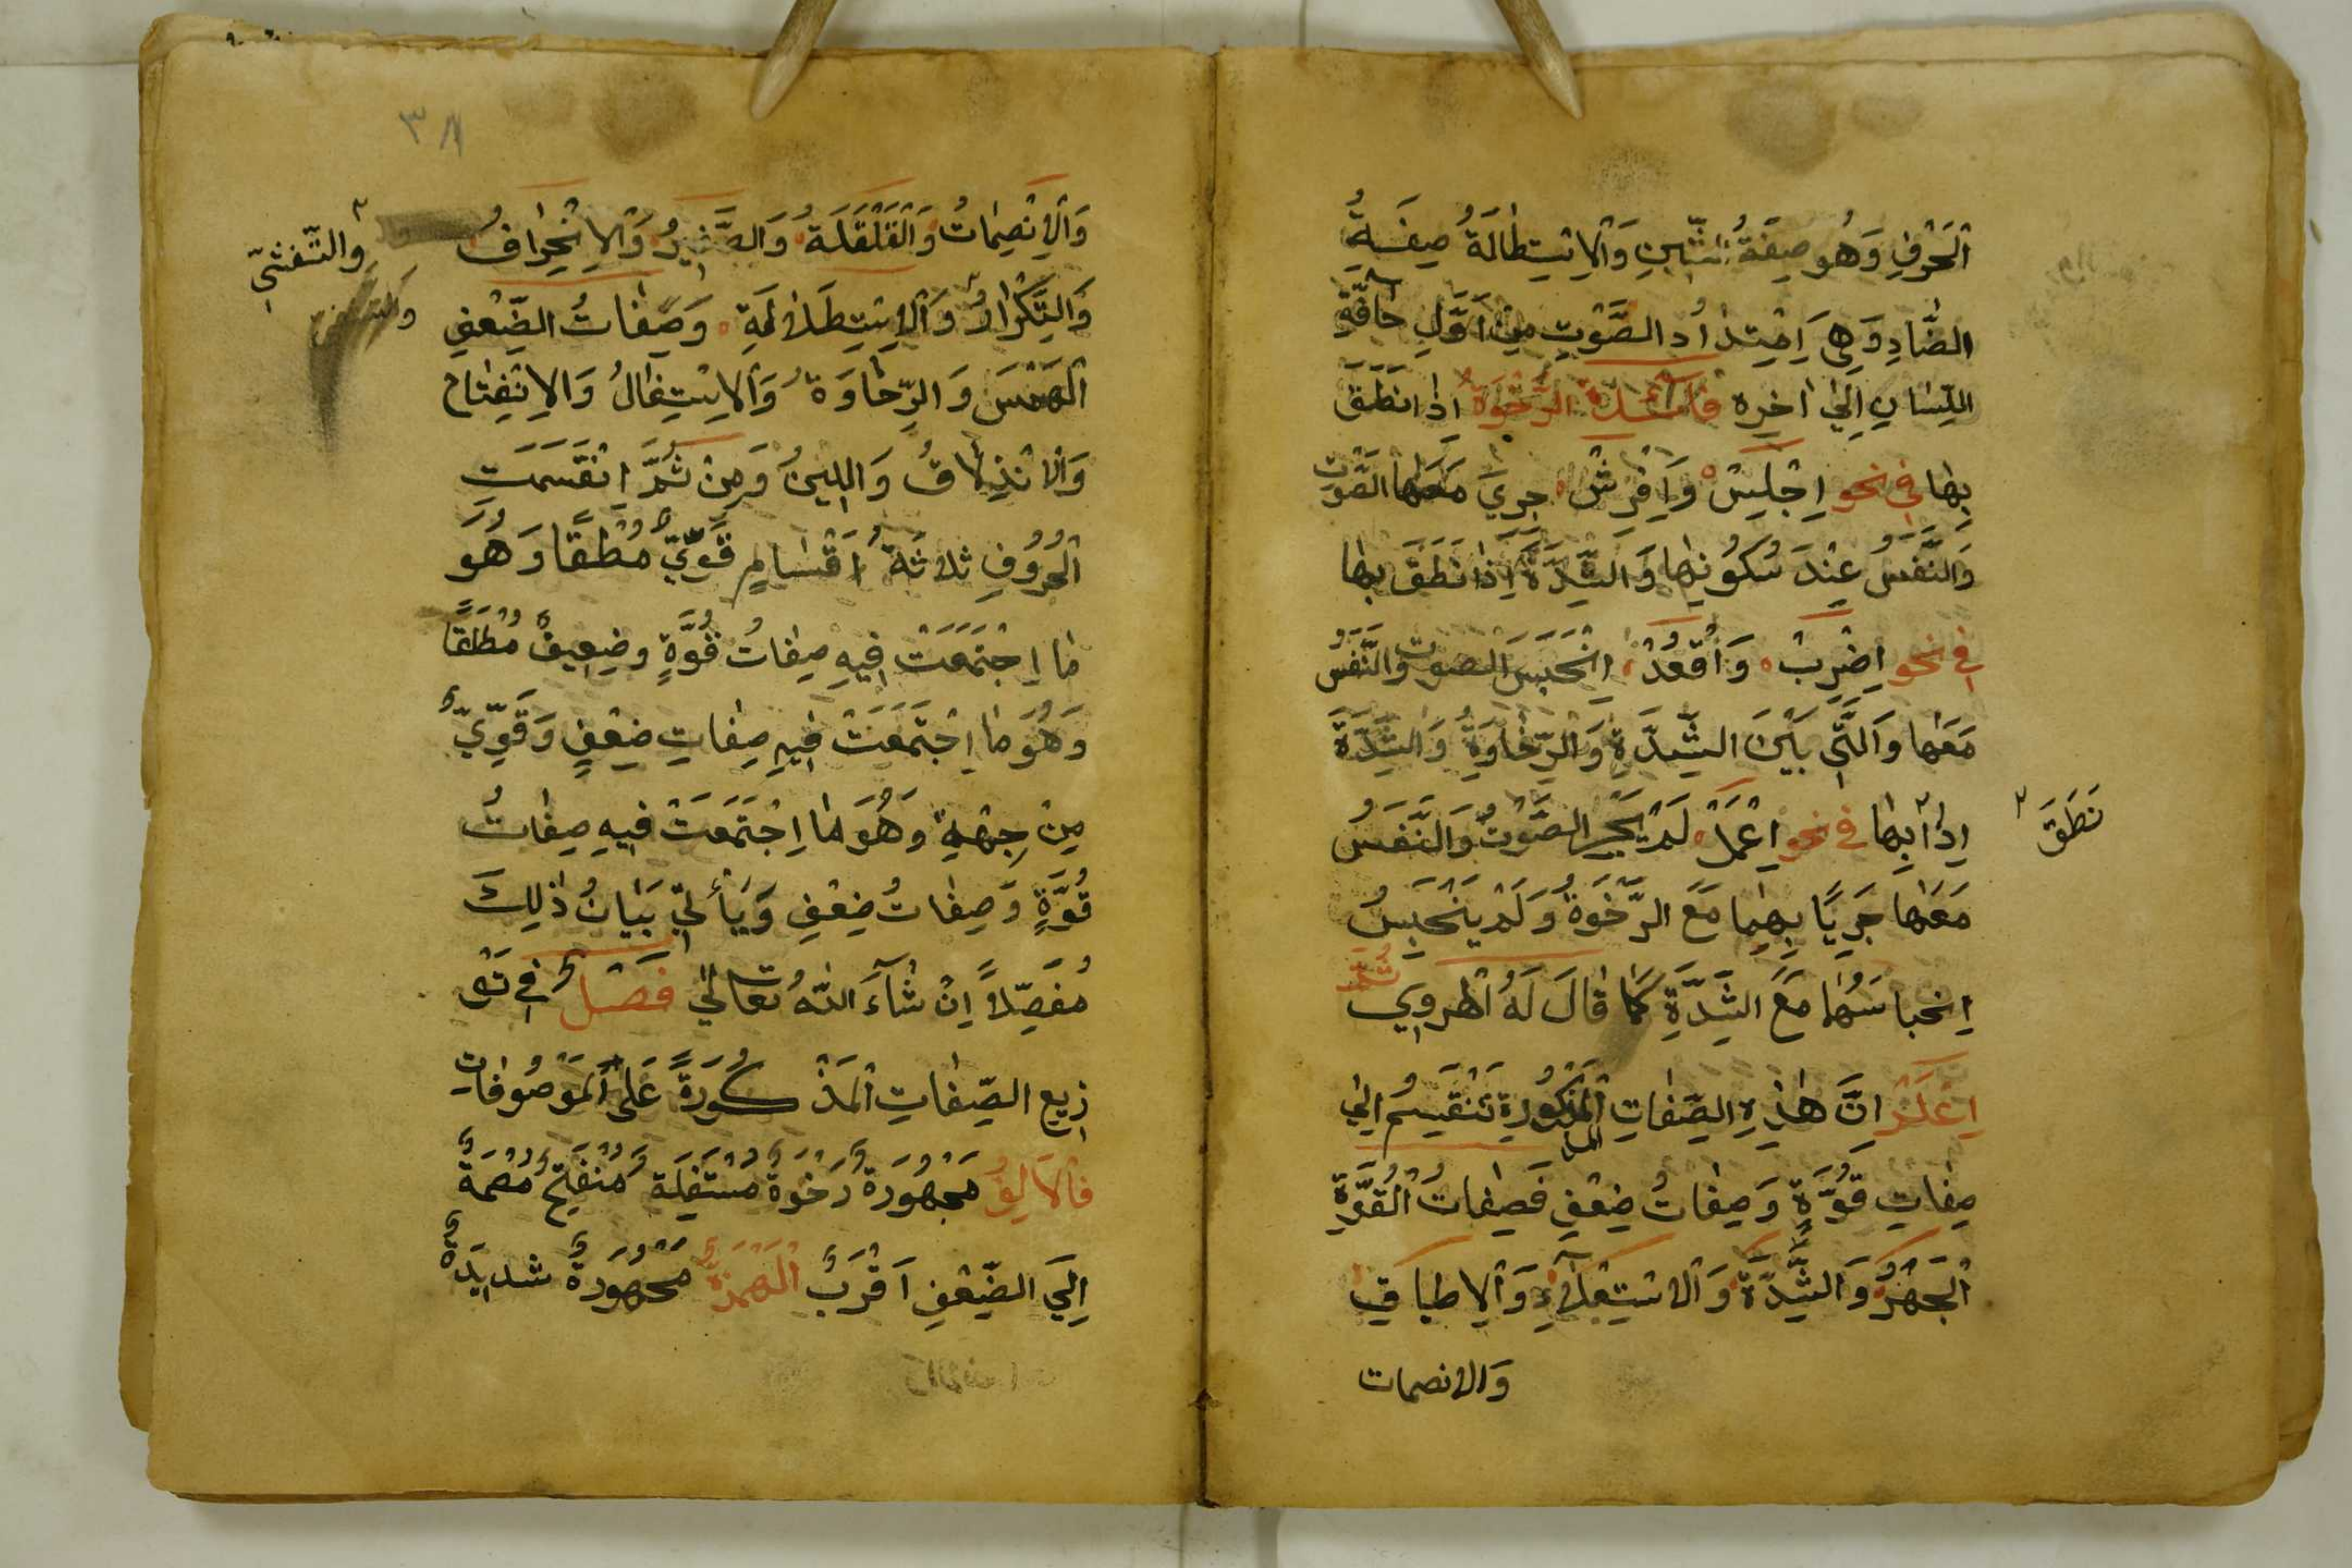 اَلْحَرْفِ وَهُو صِفَةُ الشِّينِ وَالْاِسْتِطَالَةُ صِفَةُ
الضَّادِ وَهِيَ اِمْتِدَادُ الصَّوْتِ مِنْ اَوَّلِ حَافَّةِ
اللِّسَانِ اِلٰي اٰخِرِه فَائدة الرَّخْوَةُ اذا نَطَقَ
بِهٰا في نحو اِجْلِسْ وَاِفْرِشْ جري مَعَهَا الصَّوْت
وَالنَّفَسُ عِنْدَ سُكُونِهٰا وَالشِّدَّةُ اِذٰا نَطَقَ بِهٰا
في نحو اِضْرِبْ وَاُقْعُدْ اِنْحَبَسَ الصوت وَالنَّفَسُ
مَعَهٰا وَالَّتِي بَيْنَ الشِّدَّةِ وَالرِّخٰاوَةِ وَالشِّدَّةُ
اِذٰا بِهٰا في نحو اِعْمَلْ لَمْ يَجْرِ الصَّوْتُ وَالنَّفَسُ
نَطَقَ
مَعَهٰا جَرِيًا بِهِمٰا مَعَ الرِّخْوَةُ وَلَمْ يَنْحَبِسُ
اِنحباسَهُمٰا مَعَ الشِّدَّةِ كَمٰا قٰالَ لَهُ الهروي ثُمَّ
اِعْلَمْ انَّ هٰذِهِ الصِّفٰاتِ الْمَذْكُورَةِ تَنْقَسِمُ اِلٰي
صِفٰاتِ قُوَّةٍ وَصِفٰاتُ ضِعْفِ فَصِفٰاتُ الْقُوَّةِ
اَلْجَهْرُ وَالشِّدَّةُ وَالْاسْتِعْلَآءِ وَالْاِطباقِ
وَالانصمات
٣٨
وَالْاِنْصِمٰاتُ وَالْقَلْقَلَةُ وَالصَّفِيرُ وَالْاِنْحِرٰافُ
والتَّفَشِّي
وَالتَّكْرٰارُ وَالْاِسْتِطَالَةِ وَصِفٰاتُ الضِّعْفِ
اَلْهَمْسَ وَالرِّخَاوَةُ وَالْاِسْتِفٰالُ وَالْاِنْفِتٰاح
وَالْانْذِلَاقُ وَاللِينُ وَمِنْ ثُمَّ اِنْقَسَمَتِ
اَلْحُرُوُفِ ثلاثَةُ اَقْسٰامٍ قَوِيٌّ مُطْلَقًا وَهُوَ
مٰا اِجْتَمَعَتْ فِيهِ صِفٰاتُ قُوَّةٍ وضِعِيفٌ مُطْلَقًا
وَهُوَ مٰا اِجْتَمَعَتْ فِيهِ صِفٰاتِ ضِعْفٍ وَقَوِيٌّ
مِنْ جِهْةٍ وَهُوَ مٰا اِجْتَمَعَتْ فيهِ صِفٰاتُ
قُوَّةٍ وَصِفٰاتُ ضِعْفِ وَيَأْتِي بَيَانُ ذٰلِكَ
مُفَصِّلًا اِنْ شٰآءَ اللّٰهُ تَعٰالٰي فَصْلٌ في تَوْ
زِيع الصِّفٰاتِ اَلْمَذْكُورَةً عَلَى الْمَوْصُوفٰاتِ
فَالْاَلِفُ مَجْهُورَةٌ رَخْوَةٌ مُسْتَفِلَةٌ مُنْفَتِحٌ مُصْمَةٌ
اِلَي الضِّعْفِ اَقْرَبُ اَلْهَمْزَةُ مَجْهُورَةٌ شديدَةٌ